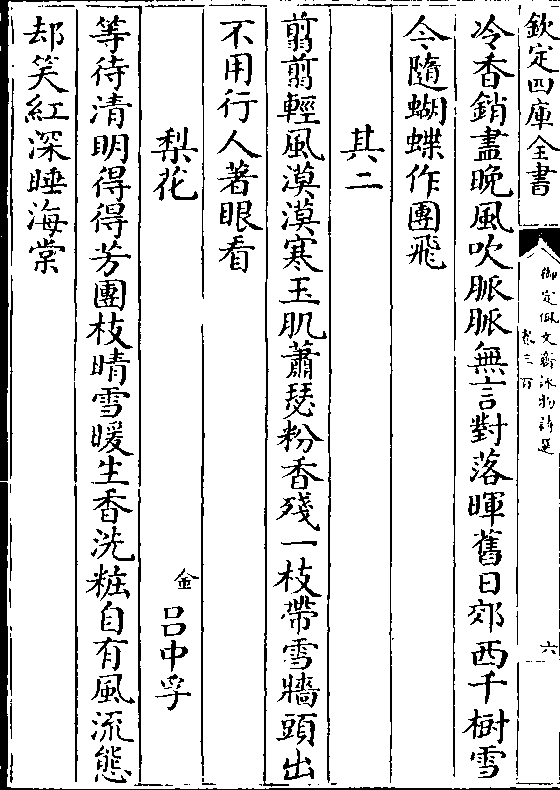 欽定四庫全書
御定佩文齋詠物詩選
卷三百
六
冷香銷盡晚風吹脈脈無言對落暉舊日郊西千樹雪
今隨蝴蝶作團飛
其二
翦翦輕風漠漠寒玉肌蕭瑟粉香殘一枝帶雪牆頭出
不用行人著眼看
梨花 金 呂中孚
等待清明得得芳團枝晴雪暖生香洗粧自有風流態
却笑紅深睡海棠